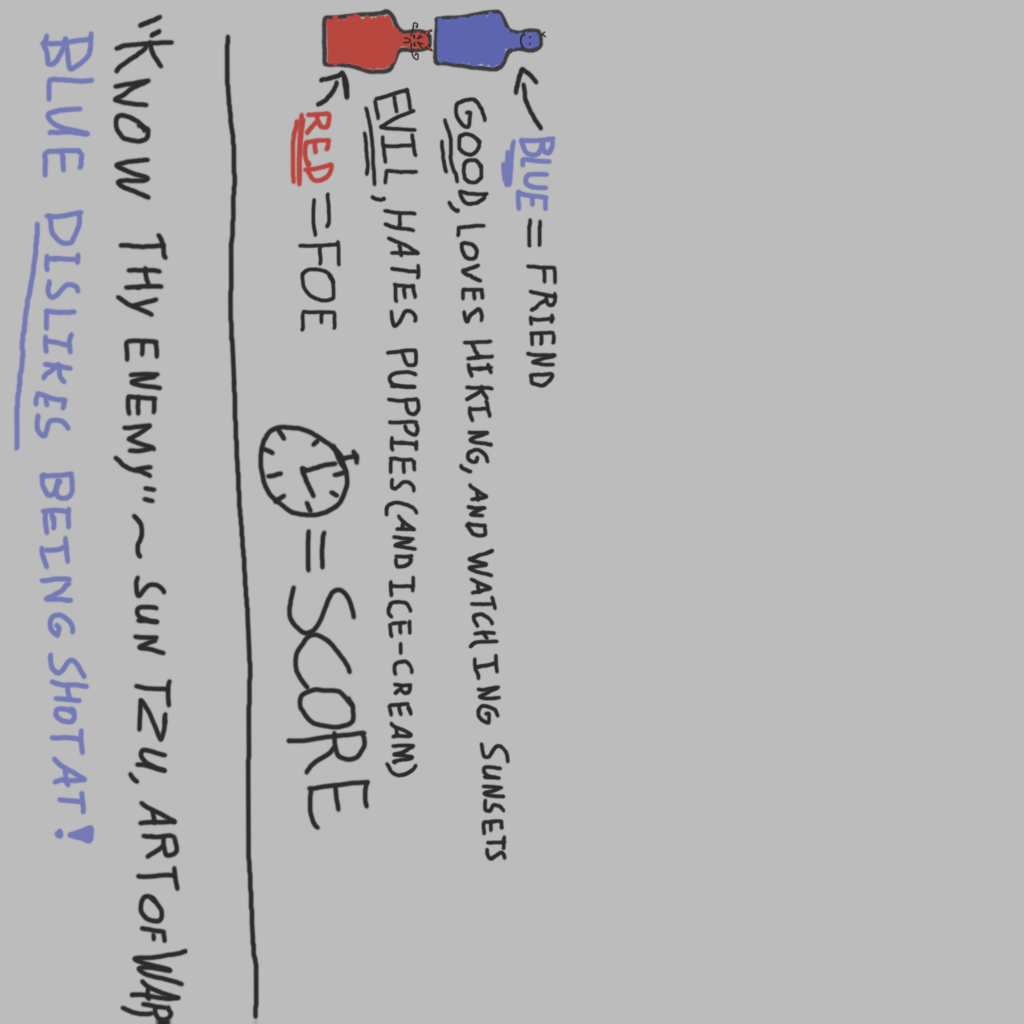 BLUE = FRIEND
GOOD, LOVES HIKING, AND WATCHING SUNSETS
EVIL, HATES PUPPIES (AND ICE-CREAM)
RED = FOE
= SCORE
"KNOW THY ENEMY" ~ SUN TZU, ART OF WAR
BLUE DISLIKES BEING SHOT AT!